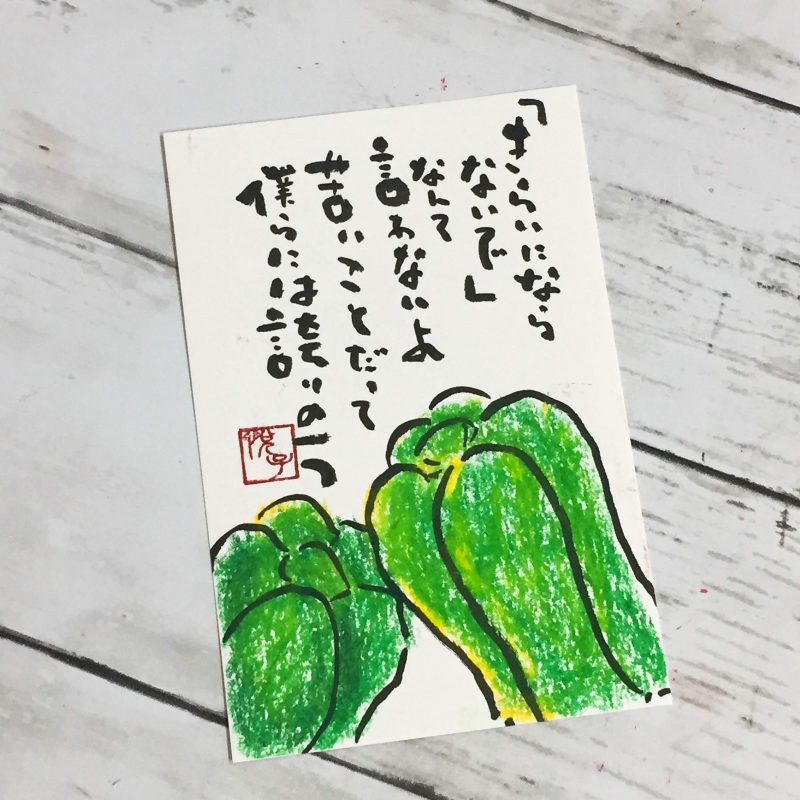 「きらいになら
ないで」
なんて
言わないよ
苦いことだって
僕らには誇りの一つ